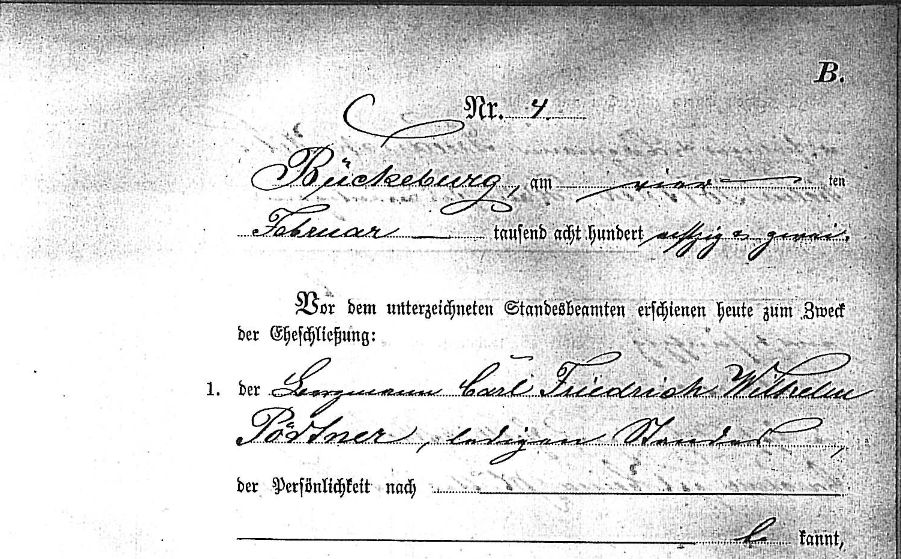 B.
Nr. 4.
Bückeburg, am vier ten
Februar tausend acht hundert achtzig & zwei.
Vor dem unterzeichneten Standesbeamten erschienen heute zum Zweck
der Eheschließung:
1. der Bergmann Carl Friedrich Wilhelm
Pördtner, ledigen Standes,
der Persönlichkeit nach
be kannt,